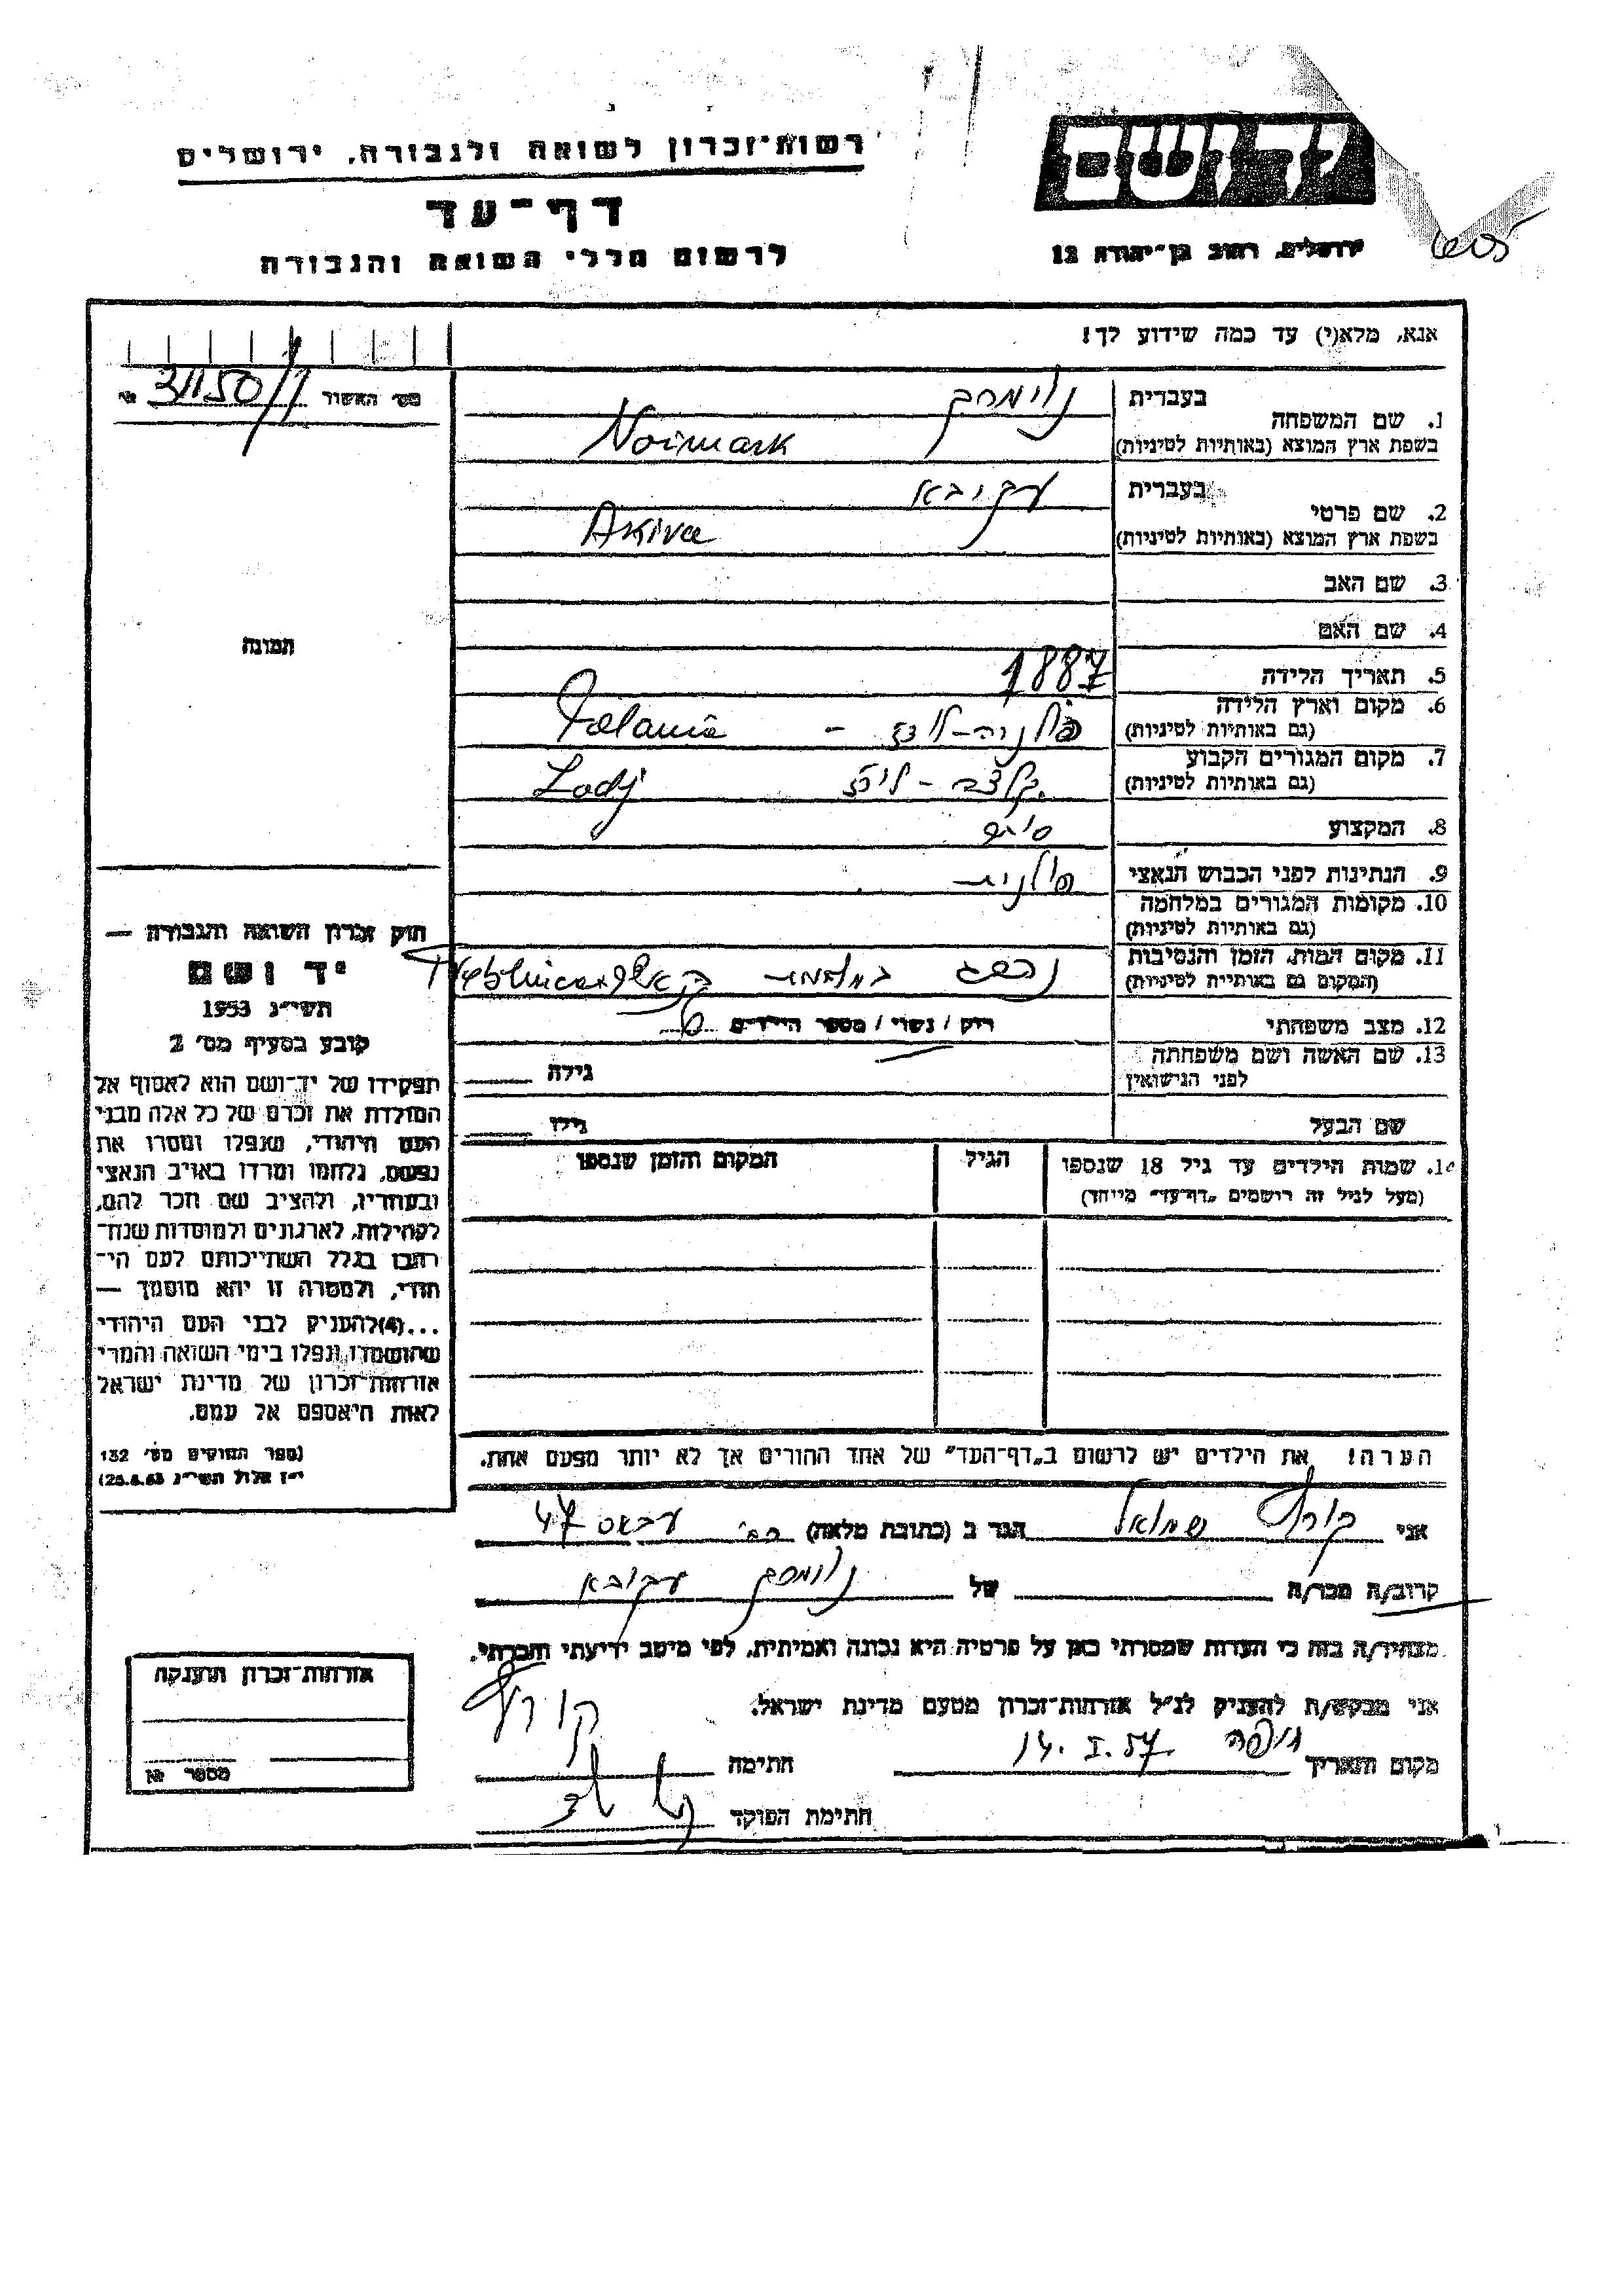 רשות־זכרון לשואה ולגבורה, ירושלים
דף־עד
לרשום חללי השואה והגבורה
יד ושם
ירושלים, רחוב בן־יהודה 12
אנא, מלא(י) עד כמה שידוע לך!
מס׳ האשור
1. שם המשפחה
בעברית נוימרק
בשפת ארץ המוצא (באותיות לטיניות) Noimark
2. שם פרטי
בעברית עקיבא
בשפת ארץ המוצא (באותיות לטיניות) Akiva
3. שם האב
4. שם האם
5. תאריך הלידה 1887
6. מקום וארץ הלידה
(גם באותיות לטיניות) פולניה - לודז - Polania
7. מקום המגורים הקבוע
(גם באותיות לטיניות) לודז Lodj
8. המקצוע
9. הנתינות לפני הכבוש הנאצי פולנית
10. מקומות המגורים במלחמה
(גם באותיות לטיניות)
11. מקום המות, הזמן והנסיבות
(המקום גם באותיות לטיניות) נהרג במלחמה
12. מצב משפחתי רווק / נשוי / מספר הילדים 6
13. שם האשה ושם משפחתה
לפני הנישואין גילה
שם הבעל גילו
תמונה
חוק זכרון השואה והגבורה —
יד ושם
תשי״ג 1953
קובע בסעיף מס׳ 2
תפקידו של יד־ושם הוא לאסוף אל
המולדת את זכרם של כל אלה מבני
העם היהודי, שנפלו ומסרו את
נפשם, נלחמו ומרדו באויב הנאצי
ובעוזריו, ולהציב שם וזכר להם,
לקהילות, לארגונים ולמוסדות שנח־
רבו בגלל השתייכותם לעם הי־
הודי, ולמטרה זו יהא מוסמך —
...(4)להעניק לבני העם היהודי
שהושמדו ונפלו בימי השואה והמרי
אזרחות־זכרון של מדינת ישראל
לאות היאספם אל עמם.
(ספר החוקים מס׳ 132
י״ז אלול תשי״ג 28.8.53)
שמות הילדים עד גיל 18 שנספו
(מעל לגיל זה רושמים „דף־עד״ מיוחד)
הגיל
המקום והזמן שנספו
הערה! את הילדים יש לרשום ב„דף־העד״ של אחד ההורים אך לא יותר מפעם אחת.
אני קורץ שמואל הגר ב (כתובת מלאה) רח׳ עבאס 47
קרוב/ה מכר/ה של נוימרק עקיבא
מצהיר/ה בזה כי העדות שמסרתי כאן על פרטיה היא נכונה ואמיתית, לפי מיטב ידיעתי והכרתי.
אני מבקש/ת להעניק לנ״ל אזרחות־זכרון מטעם מדינת ישראל.
מקום ותאריך חיפה 14.I.57 חתימה קורץ
חתימת הפוקד
אזרחות־זכרון הוענקה
מספר №